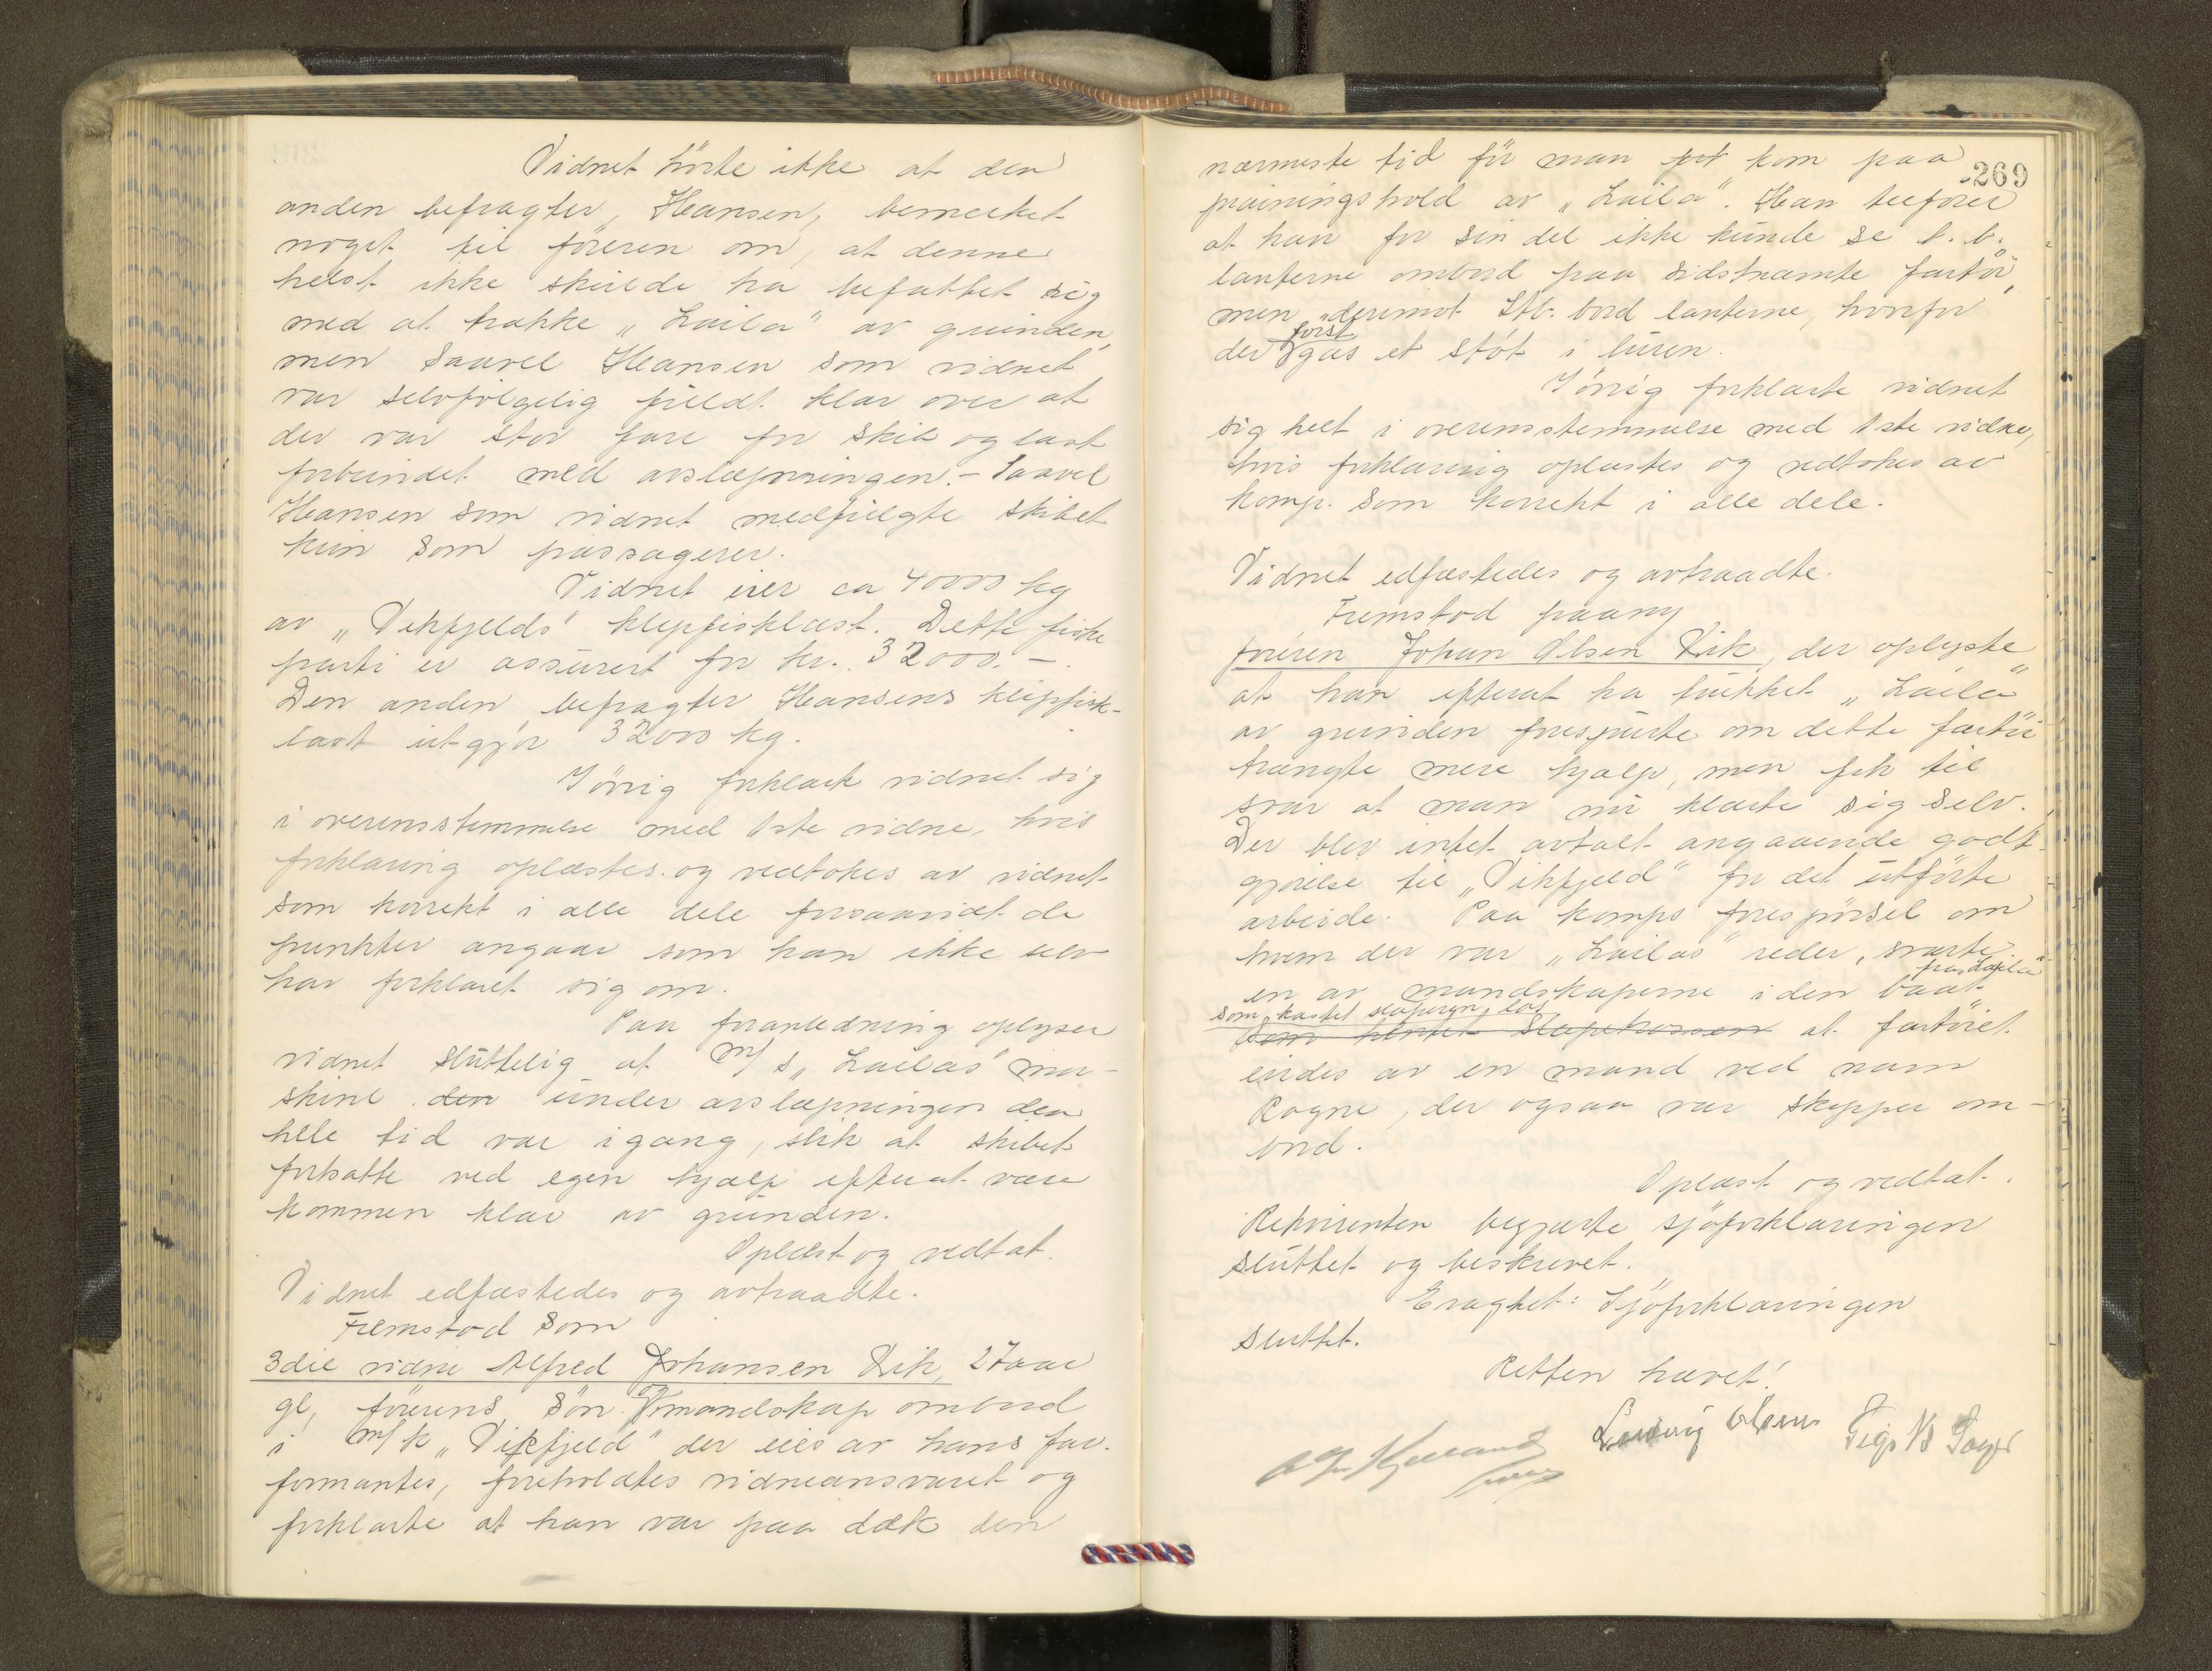 Vidnet hörte ikke at den
anden befragter, Hansen, bemerket
noget til föreren om, at denne
helst ikke skulde ha befattet sig
med at trække „Laila" av grunden,
men saavel Hansen som vidnet
var selvfölgelig fuldt klar over at
der var stor fare for skib og last
forbundet med avslæpningen. - Saavel
Hansen som vidnet medfulgte skibet
kun som passagerer.
Vidnet eier ca 40000 kg
av „Vikfjelds" klipfisklast. Dette fiske
parti er assurert for kr. 32000. -.
Den anden befragter Hansens klipfisk-
last utgjör 32000 kg.
Iövrig forklarte vidnet sig
i overensstemmelse med 1ste vidne, hvis
forklaring oplæstes og vedtokes av vidnet
som korrekt i alle dele forsaavidt de
punkter angaar som han ikke selv
har forklaret sig om.
Paa foranledning oplyser
vidnet sluttelig at m/s „Lailas" ma-
skine den under avslæpningen den
hele tid var igang, slik at skibet
fortsatte ved egen hjælp efterat være
kommen klar av grunden.
Oplæst og vedtat.
Vidnet edfæstedes og avtraadte.
Fremstod som
3die vidne Alfred Johansen Vik, 27 aar
gl, förerens sön og mandskap ombord
i m/k „Vikfjeld" der eies av hans far.
formantes, foreholdtes vidneansvaret og
forklarte at han var paa dæk den
269
nærmeste tid för man kom paa
prainingshold av „Laila". Han tilföier
at han for sin del ikke kunde se b.b.
lanterne ombord paa sidstnævnte fartöi,
men derimot Stb. bord lanterne, hvorfor
först
der gas et stöt i luren.
Iövrig forklarte vidnet
sig helt i overensstemmelse med 1ste vidne,
hvis forklaring oplæstes og vedtokes av
komp. som korrekt i alle dele.
Vidnet edfæstedes og avtraadte.
Fremstod paany
föreren Johan Olsen Vik, der oplyste
at han efterat ha trukket „Laila"
av grunden forespurte om dette fartöi
trængte mere hjælp, men fik til
svar at man nu klarte sig selv.
Der blev intet avtalt angaaende godt-
gjörelse til „Vikfjeld" for det utförte
arbeide. Paa komps forespörsel om
hvem der var „Lailas" reder, svarte
fra „Laila"
en av mandskaperne i den baat
som kastet slæperen lös
som hentet slæpetrossen at fartöiet
eiedes av en mand ved navn
Rogne, der ogsaa var skipper om-
bord.
Oplæst og vedtat.
Rekvirenten begjærte sjöforklaringen
sluttet og beskrevet.
Eragtet: Sjöforklaringen
sluttet.
Retten hævet!
Ludvig Olsen